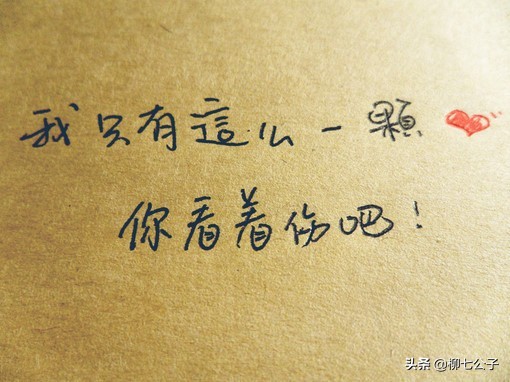 我只有這么一顆
你看着伤吧！
头条 @柳七公子